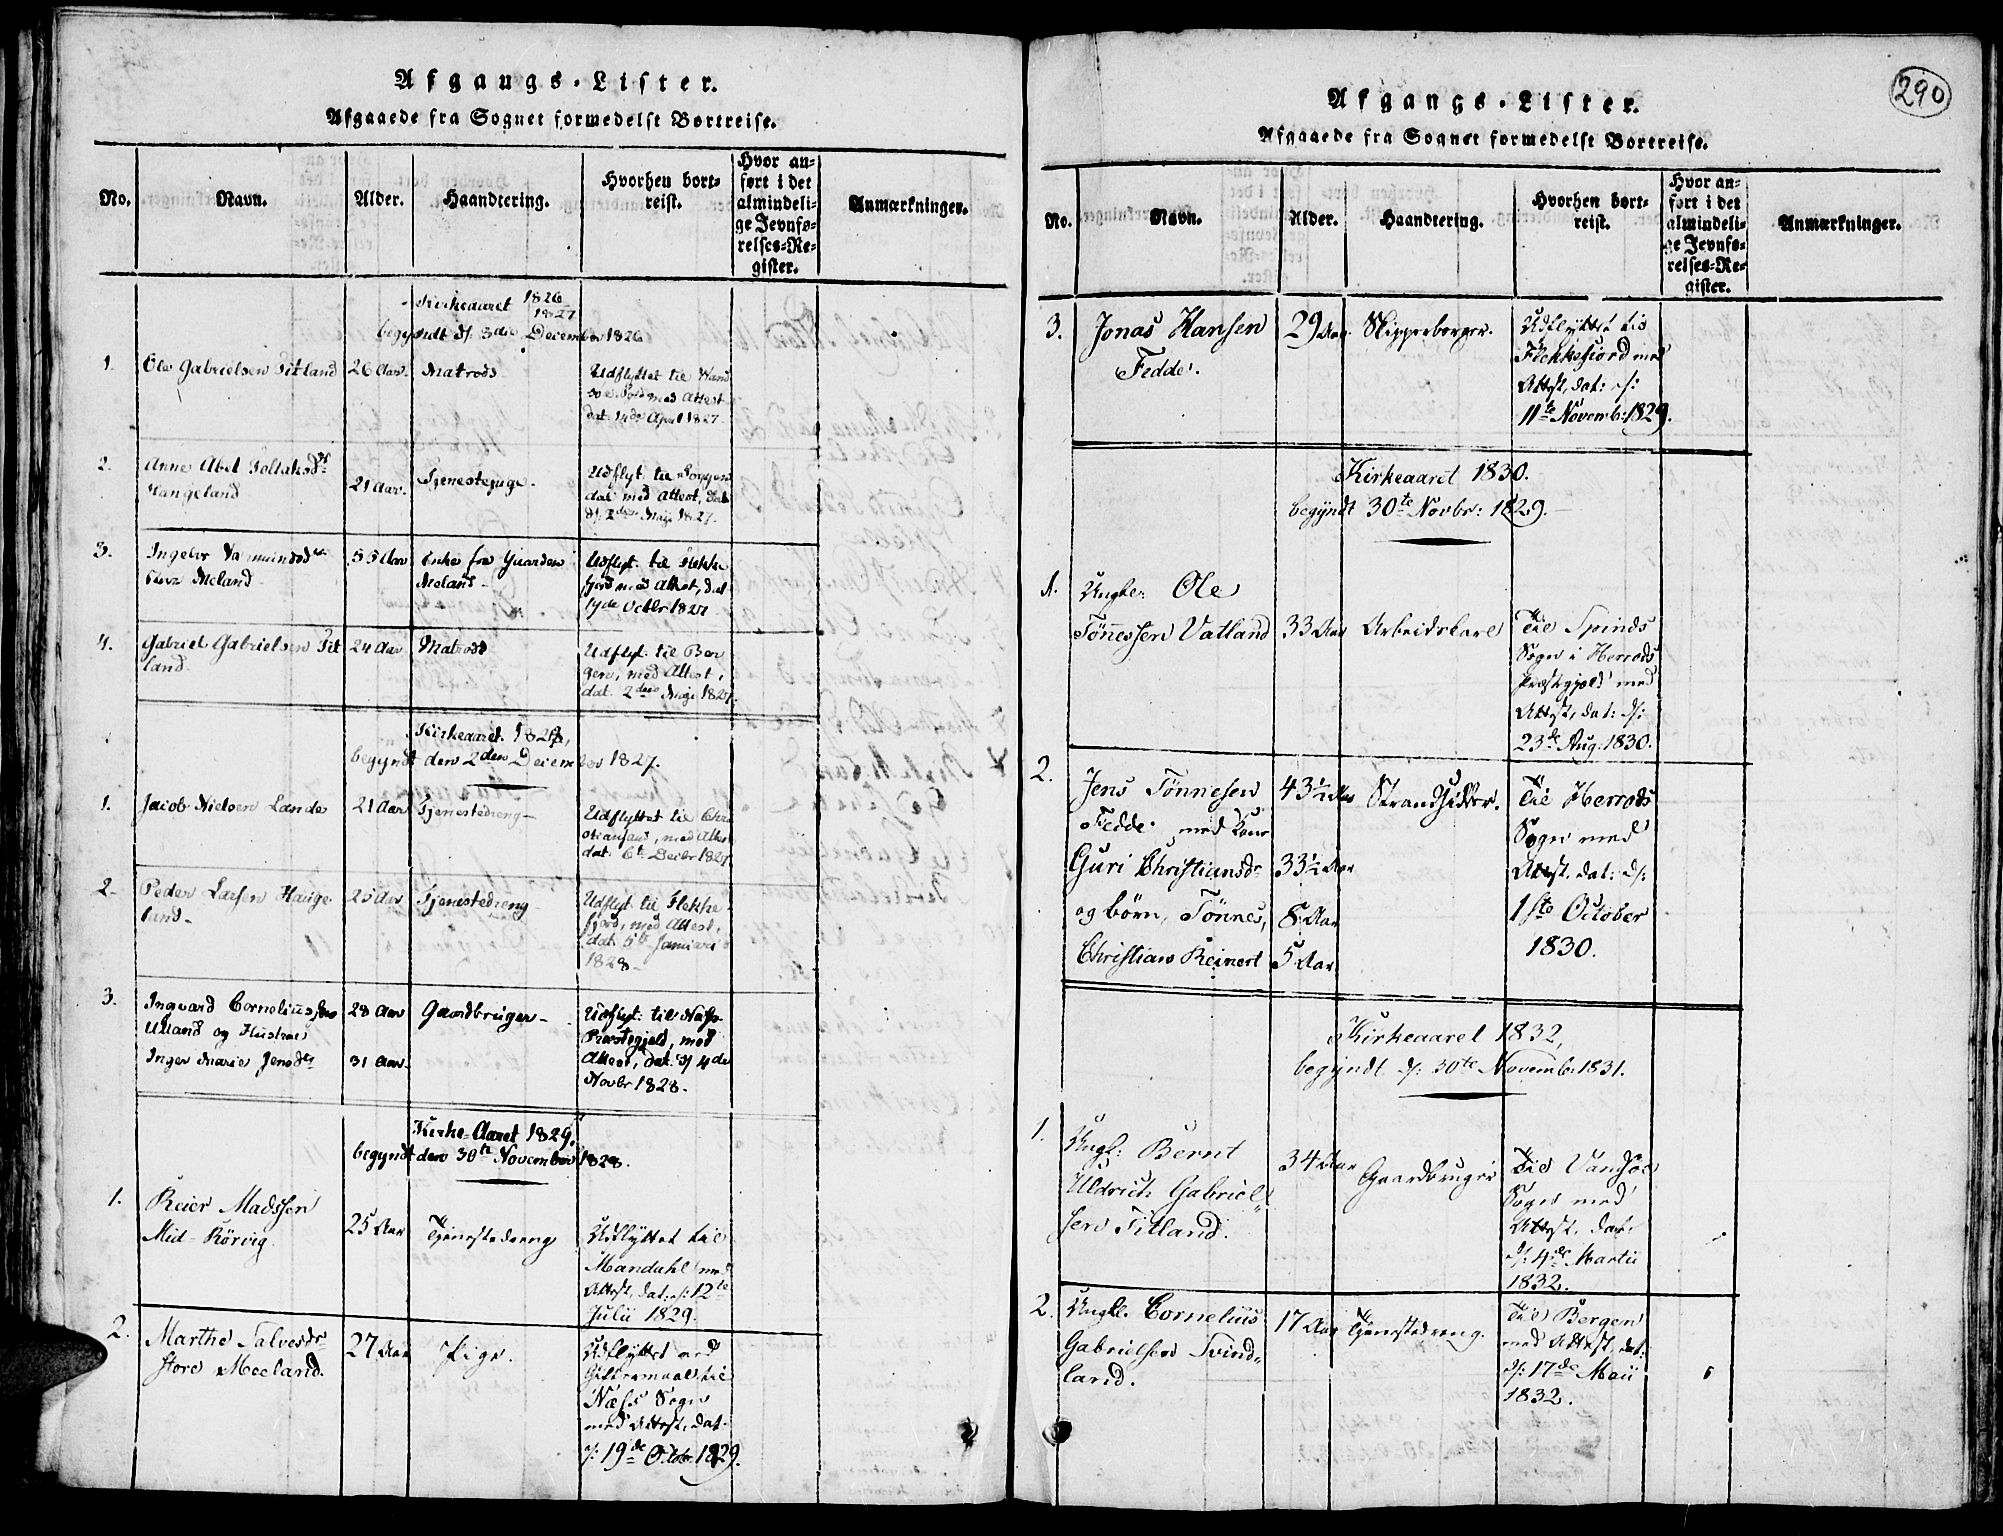 Afgangs-Lister.
Afgaaede fra Sognet formedelst Bortreise.
No. Navn. Alder. Haandtering. Hvorhen bortreist. Hvor anført i det almindelige Jevnførelses-Register. Anmærkninger.
Kirkeaaret 1826
1827
begyndt d/ 3die December 1826
1. Ole Gabrielsen Titland 26 Aar. Matros
Udflyttet til
med Attest
dat. 14de April 1827
2. Anne Abel
Hangeland 21 Aar. Tjenestepige.
Udflyt. til
dal med Attest, dat.
d/ 2den Maji 1827.
3. Ingebr
Meland 55 Aar Enke fra Gaarden
Meland
Udflyt. til Flekke
fjord med Attest, dat
17de Octbr 1827
4. Gabriel Gabrielsen Tit
land 24 Aar Matros
Udflyt. til Ber
gen, med Attest,
dat. 2den Maji 1827.
Kirkeaaret 1828,
begyndt den 2den December 1827.
1. Jacob Nielsen Lande 21 Aar Tjenestedreng
Udflyttet til Chri
stiansand, med Attest
dat. 6te Decbr 1827
2. Peder Larsen Hauge
land 25 Aar Tjenestedreng
Udflyt. til Flekke
fjord, med Attest,
dat. 5te Januari
1828
3. Ingvard Cornelius
Ulland og Hustrue 28 Aar Gaardbruger
Inger Marie Jensdr 31 Aar.
Udflyt. til Næss
Præstegjeld, med
Attest, dat. d/ 4de
Novbr 1828.
Kirke-Aaret 1829.
begyndt den 30te November 1828.
1. Reier Madssen
Mid-Rörvig. 25 Aar Tjenestedreng
Udflyttet til
Mandahl med
Attest, dat: d/: 12te
Julii 1829.
2. Marthe Salvesdr
store Meeland. 27 Aar Pige.
Udflyttet ved
Giftermaal til
Næss Sogn
med Attest, dat.
d/: 19de Octob: 1829.
290
Afgangs-Lister.
Afgaaede fra Sognet formedelst Bortreise.
No. Navn. Alder. Haandtering. Hvorhen bortreist. Hvor anført i det almindelige Jevnførelses-Register. Anmærkninger.
3. Jonas Hansen
Fedde. 29 Aar. Skipperborger.
Udflyttet til
Flekkefiord med
Attest, dat: d/:
11te Novemb: 1829.
Kirkeaaret 1830.
begyndt 30te Novbr: 1829.
1. Ungke: Ole
Tönessen Vatland 33 Aar Arbeidskarl
Til Spinds
Sogn i Herrods
Præstgjeld med
Attest, dat: d/:
23de Aug: 1830.
2. Jens Tönnesen 43½ Aar Strandsidder.
Fedde med Kone
Guri Christiansdr 33½ Aar
og börn, Tönnes, 8 Aar
Christian Reinert 5 Aar
Til Herrods
Sogn med
Attest, dat: d/:
1ste October
1830.
Kirkeaaret 1832,
begyndt d/: 30te Novemb: 1831.
1. Ungk: Bernt
Uldrich Gabriel
sen Titland. 34 Aar Gaardbruger
Til Vandsöe
Sogn med
Attest, dat:
d/: 4de Martii
1832.
2. Ungk. Cornelius
Gabrielsen Svind
land. 17 Aar Tjenestedreng.
Til Bergen
med Attest, dat:
d/: 17de Maii
1832.